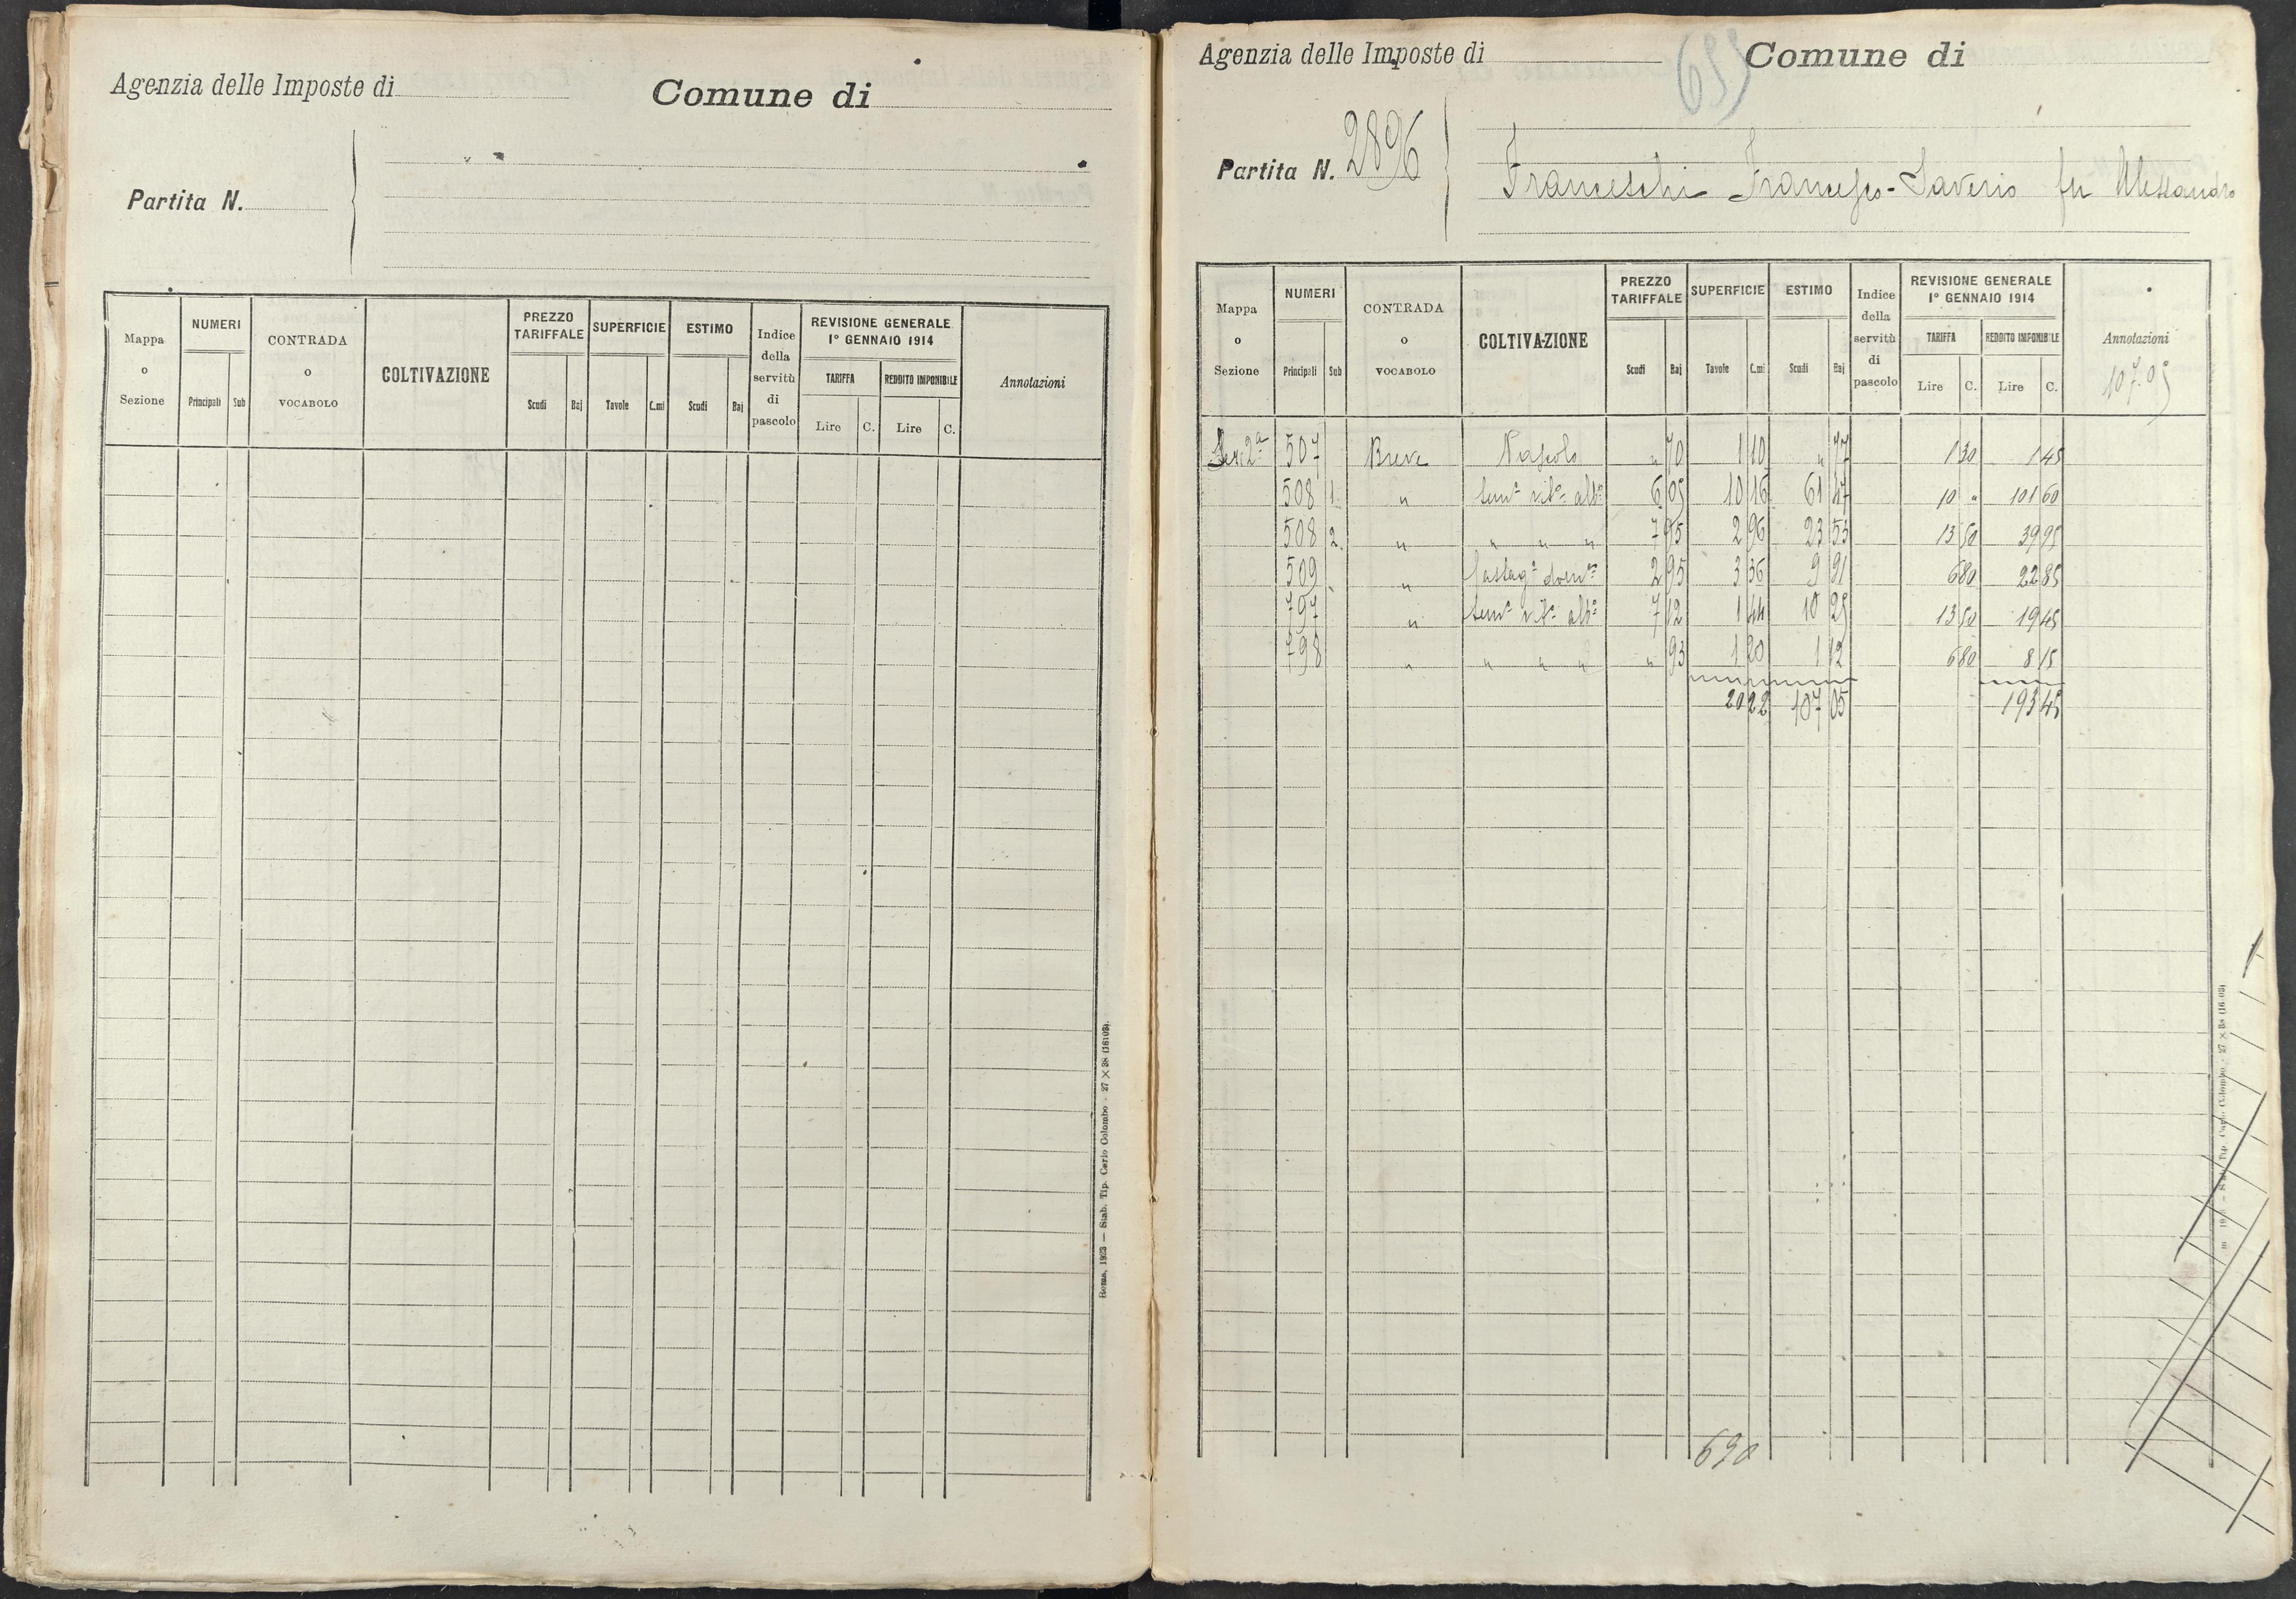 Agenzia delle Imposte di
Comune di
Partita N.
Mappa o Sezione
NUMERI
Principali Sub
CONTRADA o VOCABOLO
COLTIVAZIONE
PREZZO TARIFFALE
Scudi Baj
SUPERFICIE
Tavole C.mi
ESTIMO
Scudi Baj
Indice della servitù di pascolo
REVISIONE GENERALE
1° GENNAIO 1914
TARIFFA
Lire C.
REDDITO IMPONIBILE
Lire C.
Annotazioni
Roma, 1923 — Stab. Tip. Carlo Colombo - 27 × 38 (16103).
Agenzia delle Imposte di
Comune di
Partita N. 2896
Franceschi Francesco-Saverio fu Alessandro
Mappa o Sezione
NUMERI
Principali Sub
CONTRADA o VOCABOLO
COLTIVAZIONE
PREZZO TARIFFALE
Scudi Baj
SUPERFICIE
Tavole C.mi
ESTIMO
Scudi Baj
Indice della servitù di pascolo
REVISIONE GENERALE
1° GENNAIO 1914
TARIFFA
Lire C.
REDDITO IMPONIBILE
Lire C.
Annotazioni
107.05
Sez. 2ª 507 Breve Pascolo " 70 1 10 " 77 1 30 1 45
508 1 " Sem° vit° alb° 6 05 10 16 61 47 10 " 101 60
508 2 " " " " 7 95 2 96 23 53 13 50 39 95
509 " Castag° dom° 2 95 3 36 9 91 6 80 22 85
797 " Sem° vit° alb° 7 12 1 44 10 25 13 50 19 45
798 " " " " " 93 1 20 1 12 6 80 8 15
20 22 107 05 193 45
690
Tip. Carlo Colombo - 27 × 38 (16103)